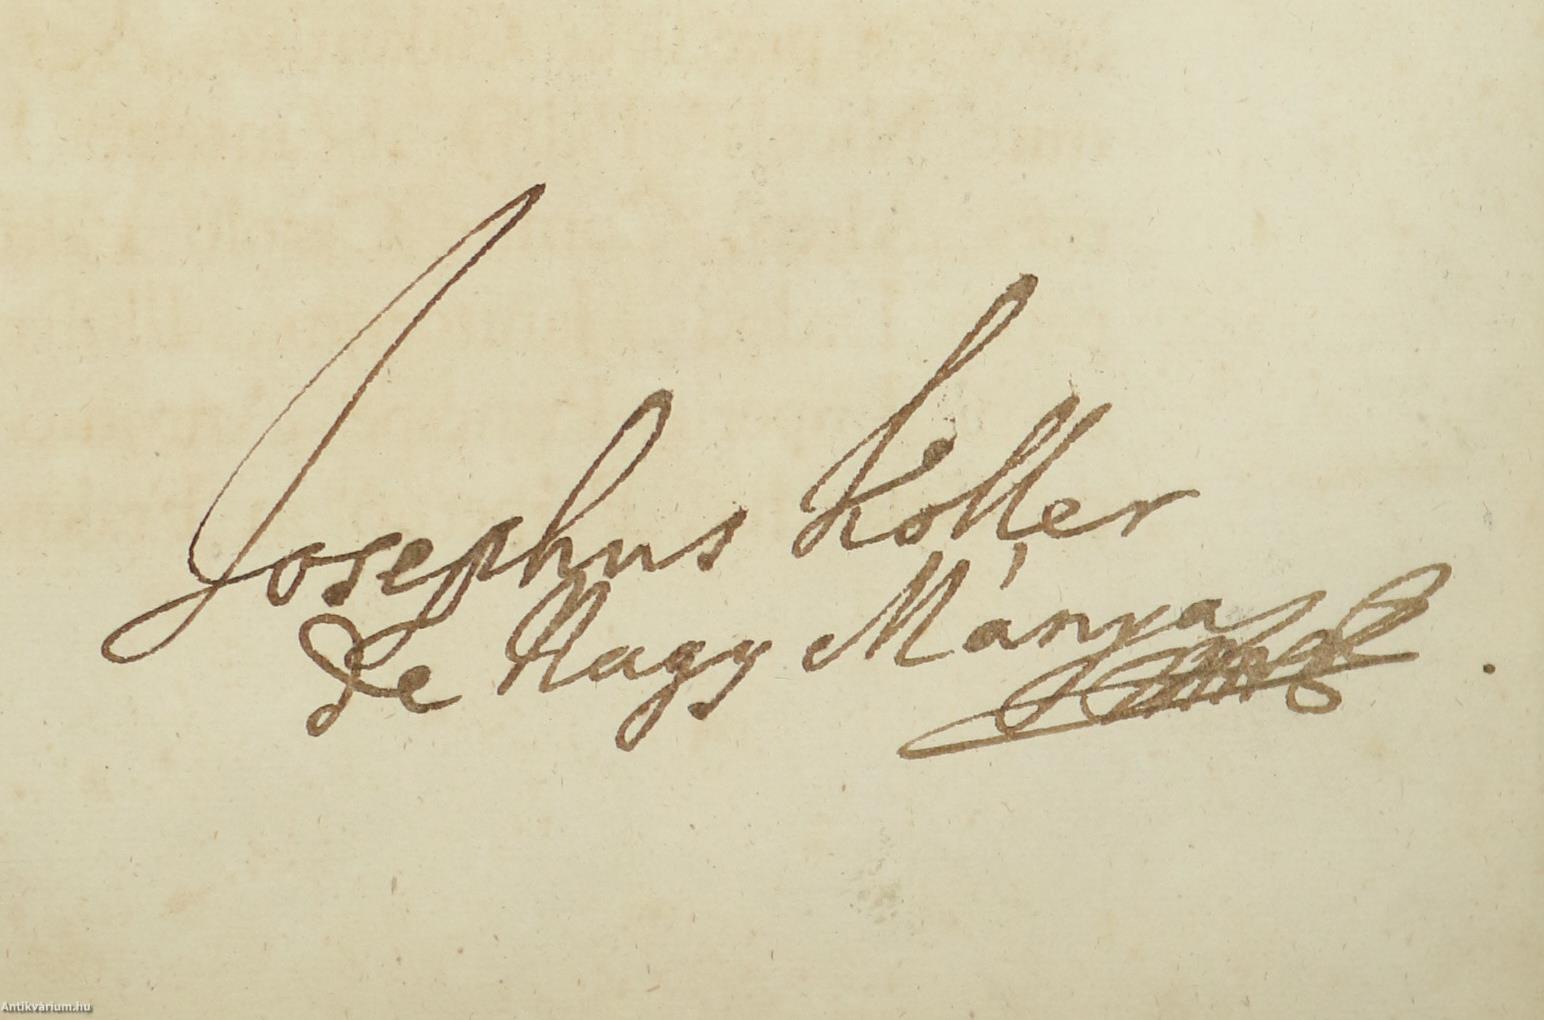 Josephus Koller
de Nagy Mánya
Antikvárium.hu